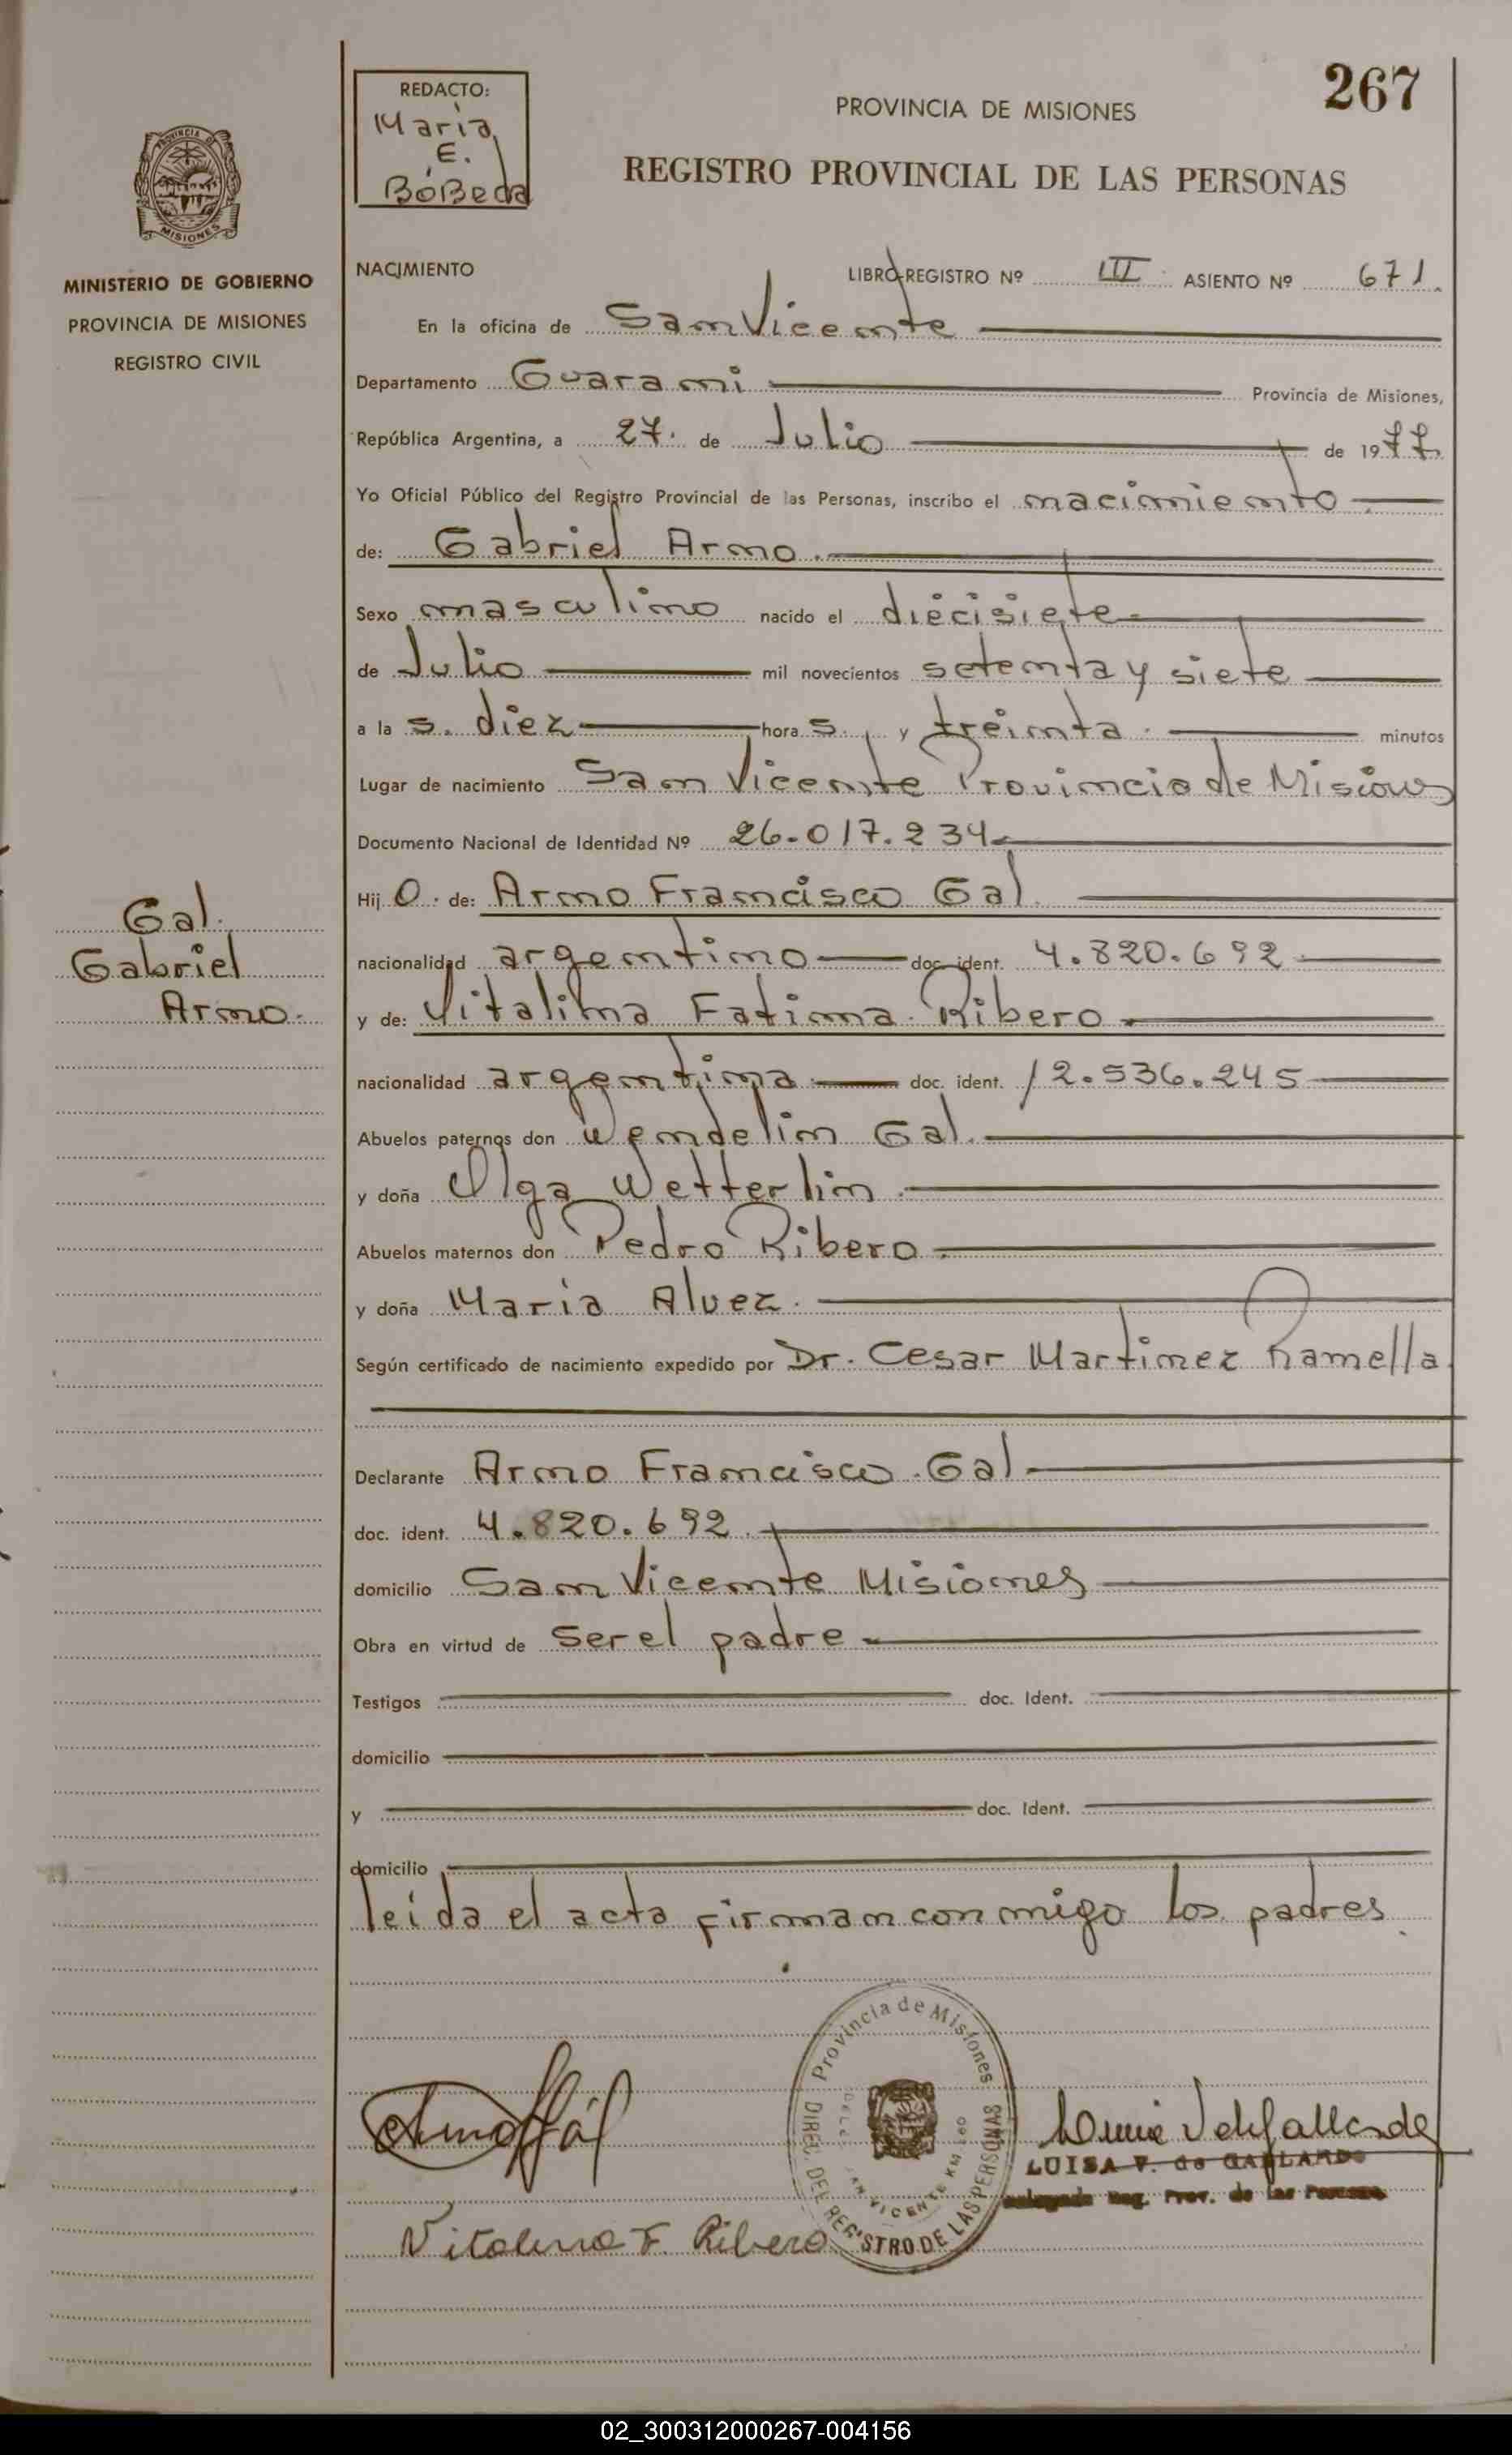 267
REDACTO:
María
E.
BóBeda
PROVINCIA DE MISIONES
REGISTRO PROVINCIAL DE LAS PERSONAS
PROVINCIA DE
MISIONES
MINISTERIO DE GOBIERNO
PROVINCIA DE MISIONES
REGISTRO CIVIL
NACIMIENTO LIBRO-REGISTRO Nº III ASIENTO Nº 671.
En la oficina de San Vicente
Departamento Guarani Provincia de Misiones,
República Argentina, a 27. de Julio de 1977.
Yo Oficial Público del Registro Provincial de las Personas, inscribo el nacimiento
de: Gabriel Arno.
Sexo masculino nacido el diecisiete
de Julio mil novecientos setenta y siete
a la s. diez hora s. y treinta. minutos
Lugar de nacimiento San Vicente Provincia de Misiones
Documento Nacional de Identidad Nº 26.017.234
Hij o. de: Arno Francisco Gal.
nacionalidad argentino doc. ident. 4.820.692
y de: Vitalina Fatima Ribero.
nacionalidad argentina doc. ident. 12.536.245
Abuelos paternos don Wendelin Gal.
y doña Olga Wetterlin.
Abuelos maternos don Pedro Ribero.
y doña Maria Alvez.
Según certificado de nacimiento expedido por Dr. Cesar Martinez Ramella
Gal.
Gabriel
Arno.
Declarante Arno Francisco Gal
doc. ident. 4.820.692.
domicilio San Vicente Misiones
Obra en virtud de ser el padre
Testigos doc. Ident.
domicilio
y doc. Ident.
domicilio
leida el acta firman conmigo los padres.
Provincia de Misiones
DIREC. DEL REGISTRO DE LAS PERSONAS
SAN VICENTE KM
LUISA V. de GALLARDO
Delegada Reg. Prov. de las Personas
Vitalina F. Ribero
02_300312000267-004156